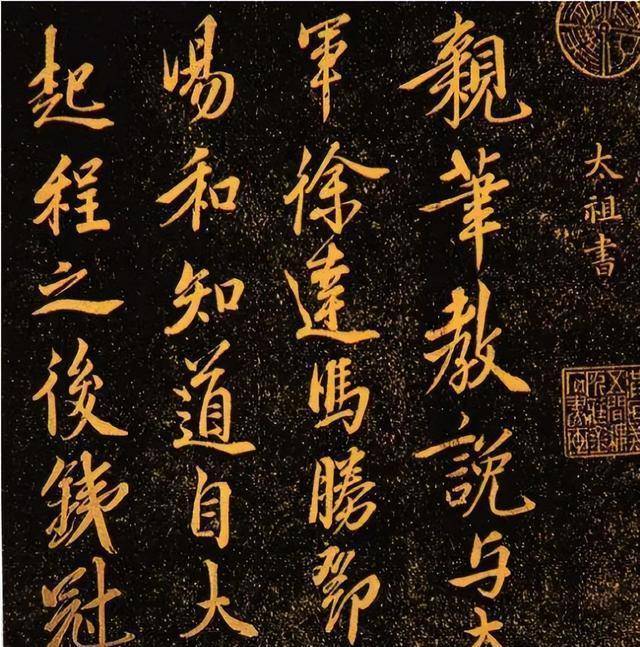 太祖書
親筆教說与大
軍徐達馮勝鄧
湯和知道自大
起程之後鐵冠